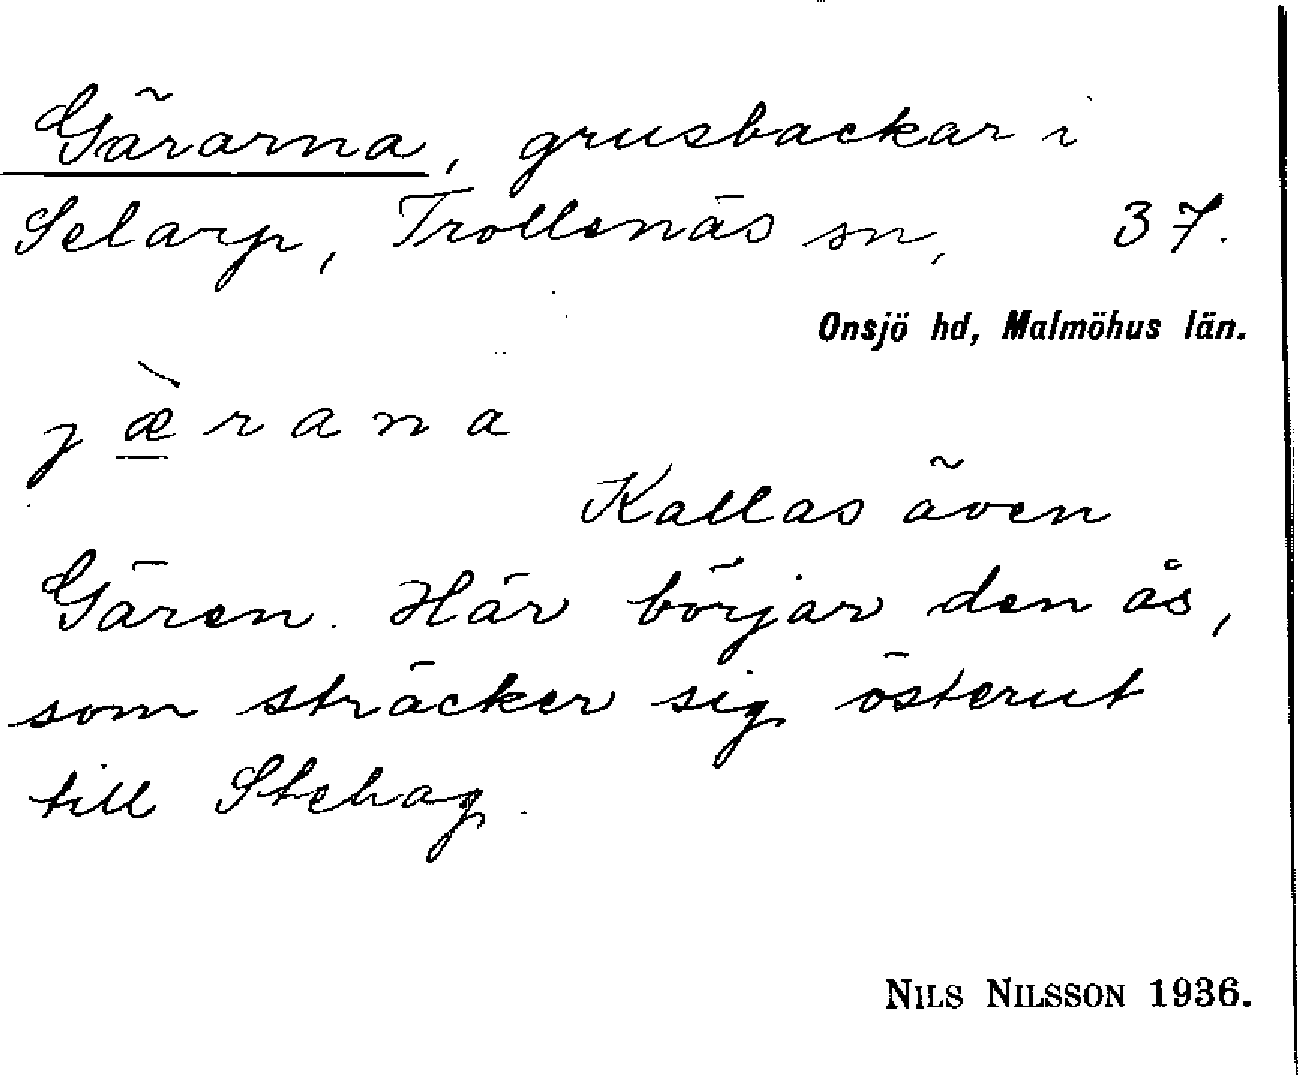 Gärarna, grusbackar i
Selarp, Trollenäs sn, 37.
Onsjö hd, Malmöhus län.
jæ̱̀rana
Kallas även
Gären. Här börjar den ås,
som sträcker sig österut
till Stehag.
NILS NILSSON 1936.